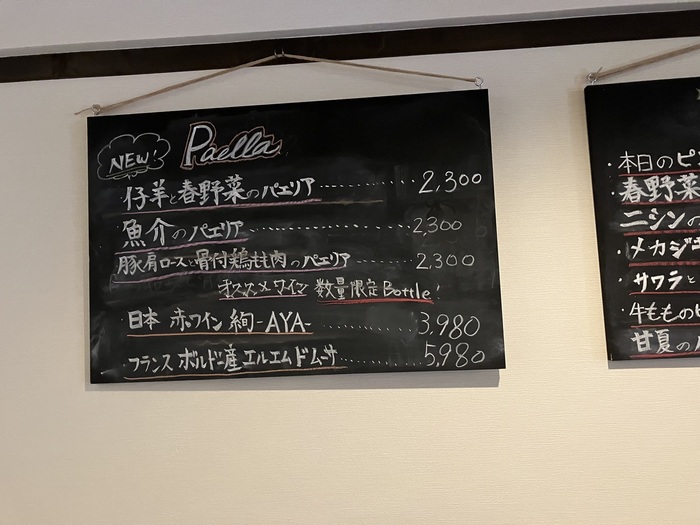 NEW! Paella
仔羊と春野菜のパエリア………2,300
魚介のパエリア………2,300
豚肩ロースと骨付鶏もも肉のパエリア………2,300
オススメワイン 数量限定Bottle!
日本 赤ワイン 絢-AYA-………3,980
・フランス ボルドー産エルエムドムーサ………5,980
・本日のピ
春野菜
ニシンの
・メカジキ
・サワラと
・牛もものピ
甘夏の